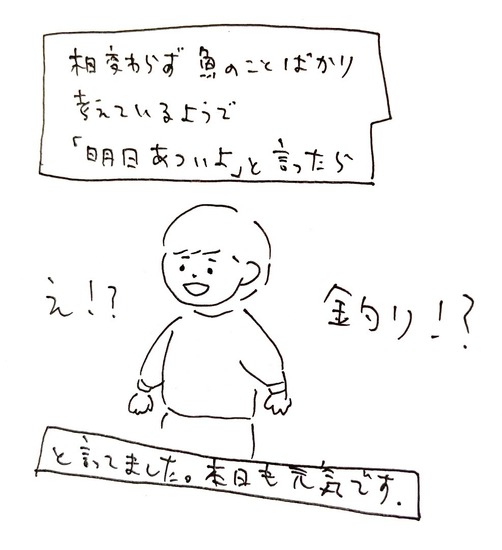 相変わらず魚のことばかり
考えているようで
「明日あついよ」と言ったら
え!?
釣り!?
と言ってました。本日も元気です.